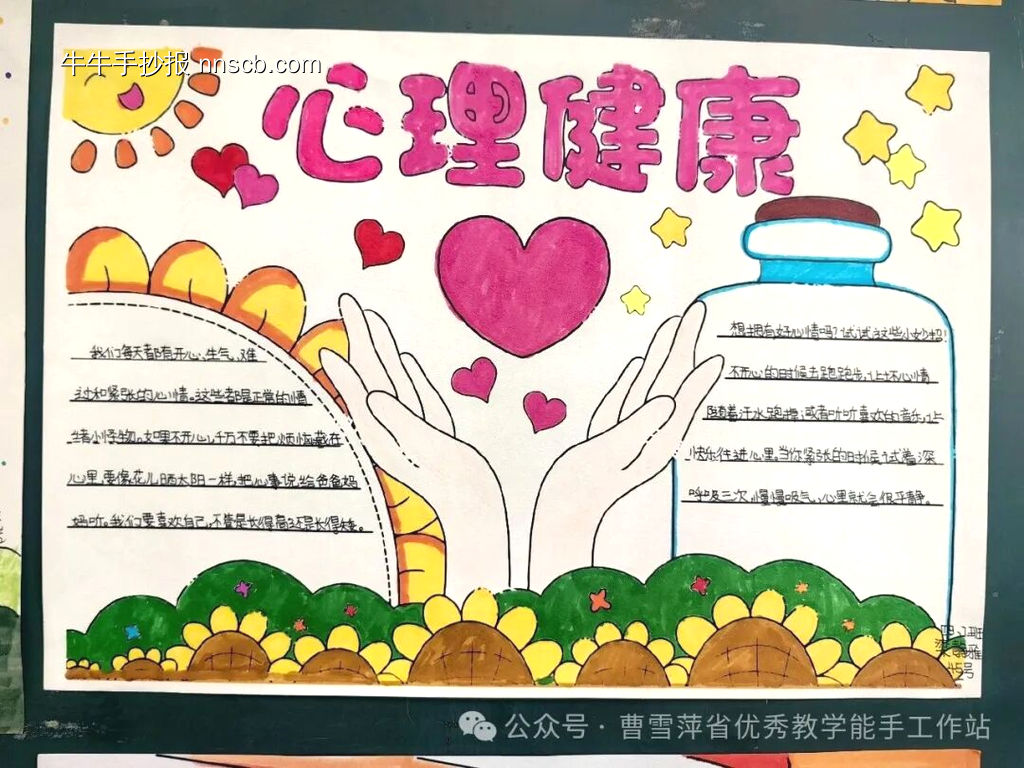 牛牛手抄报 nnscb.com
心理健康
我们每天都有开心、生气、难
过和紧张的心情。这些都是正常的情
绪小怪物。如果不开心,千万不要把烦恼藏在
心里,要像花儿晒太阳一样,把心事说给爸爸妈
妈听。我们要喜欢自己,不管是长得高还是长得矮。
想拥有好心情吗?试试这些小妙招!
不开心的时候去跑跑步,让坏心情
随着汗水跑掉;或者听听喜欢的音乐,让
快乐住进心里。当你紧张的时候,试着深
呼吸三次,慢慢吸气,心里就会很平静。
四.1班
45号
公众号·曹雪萍省优秀教学能手工作站